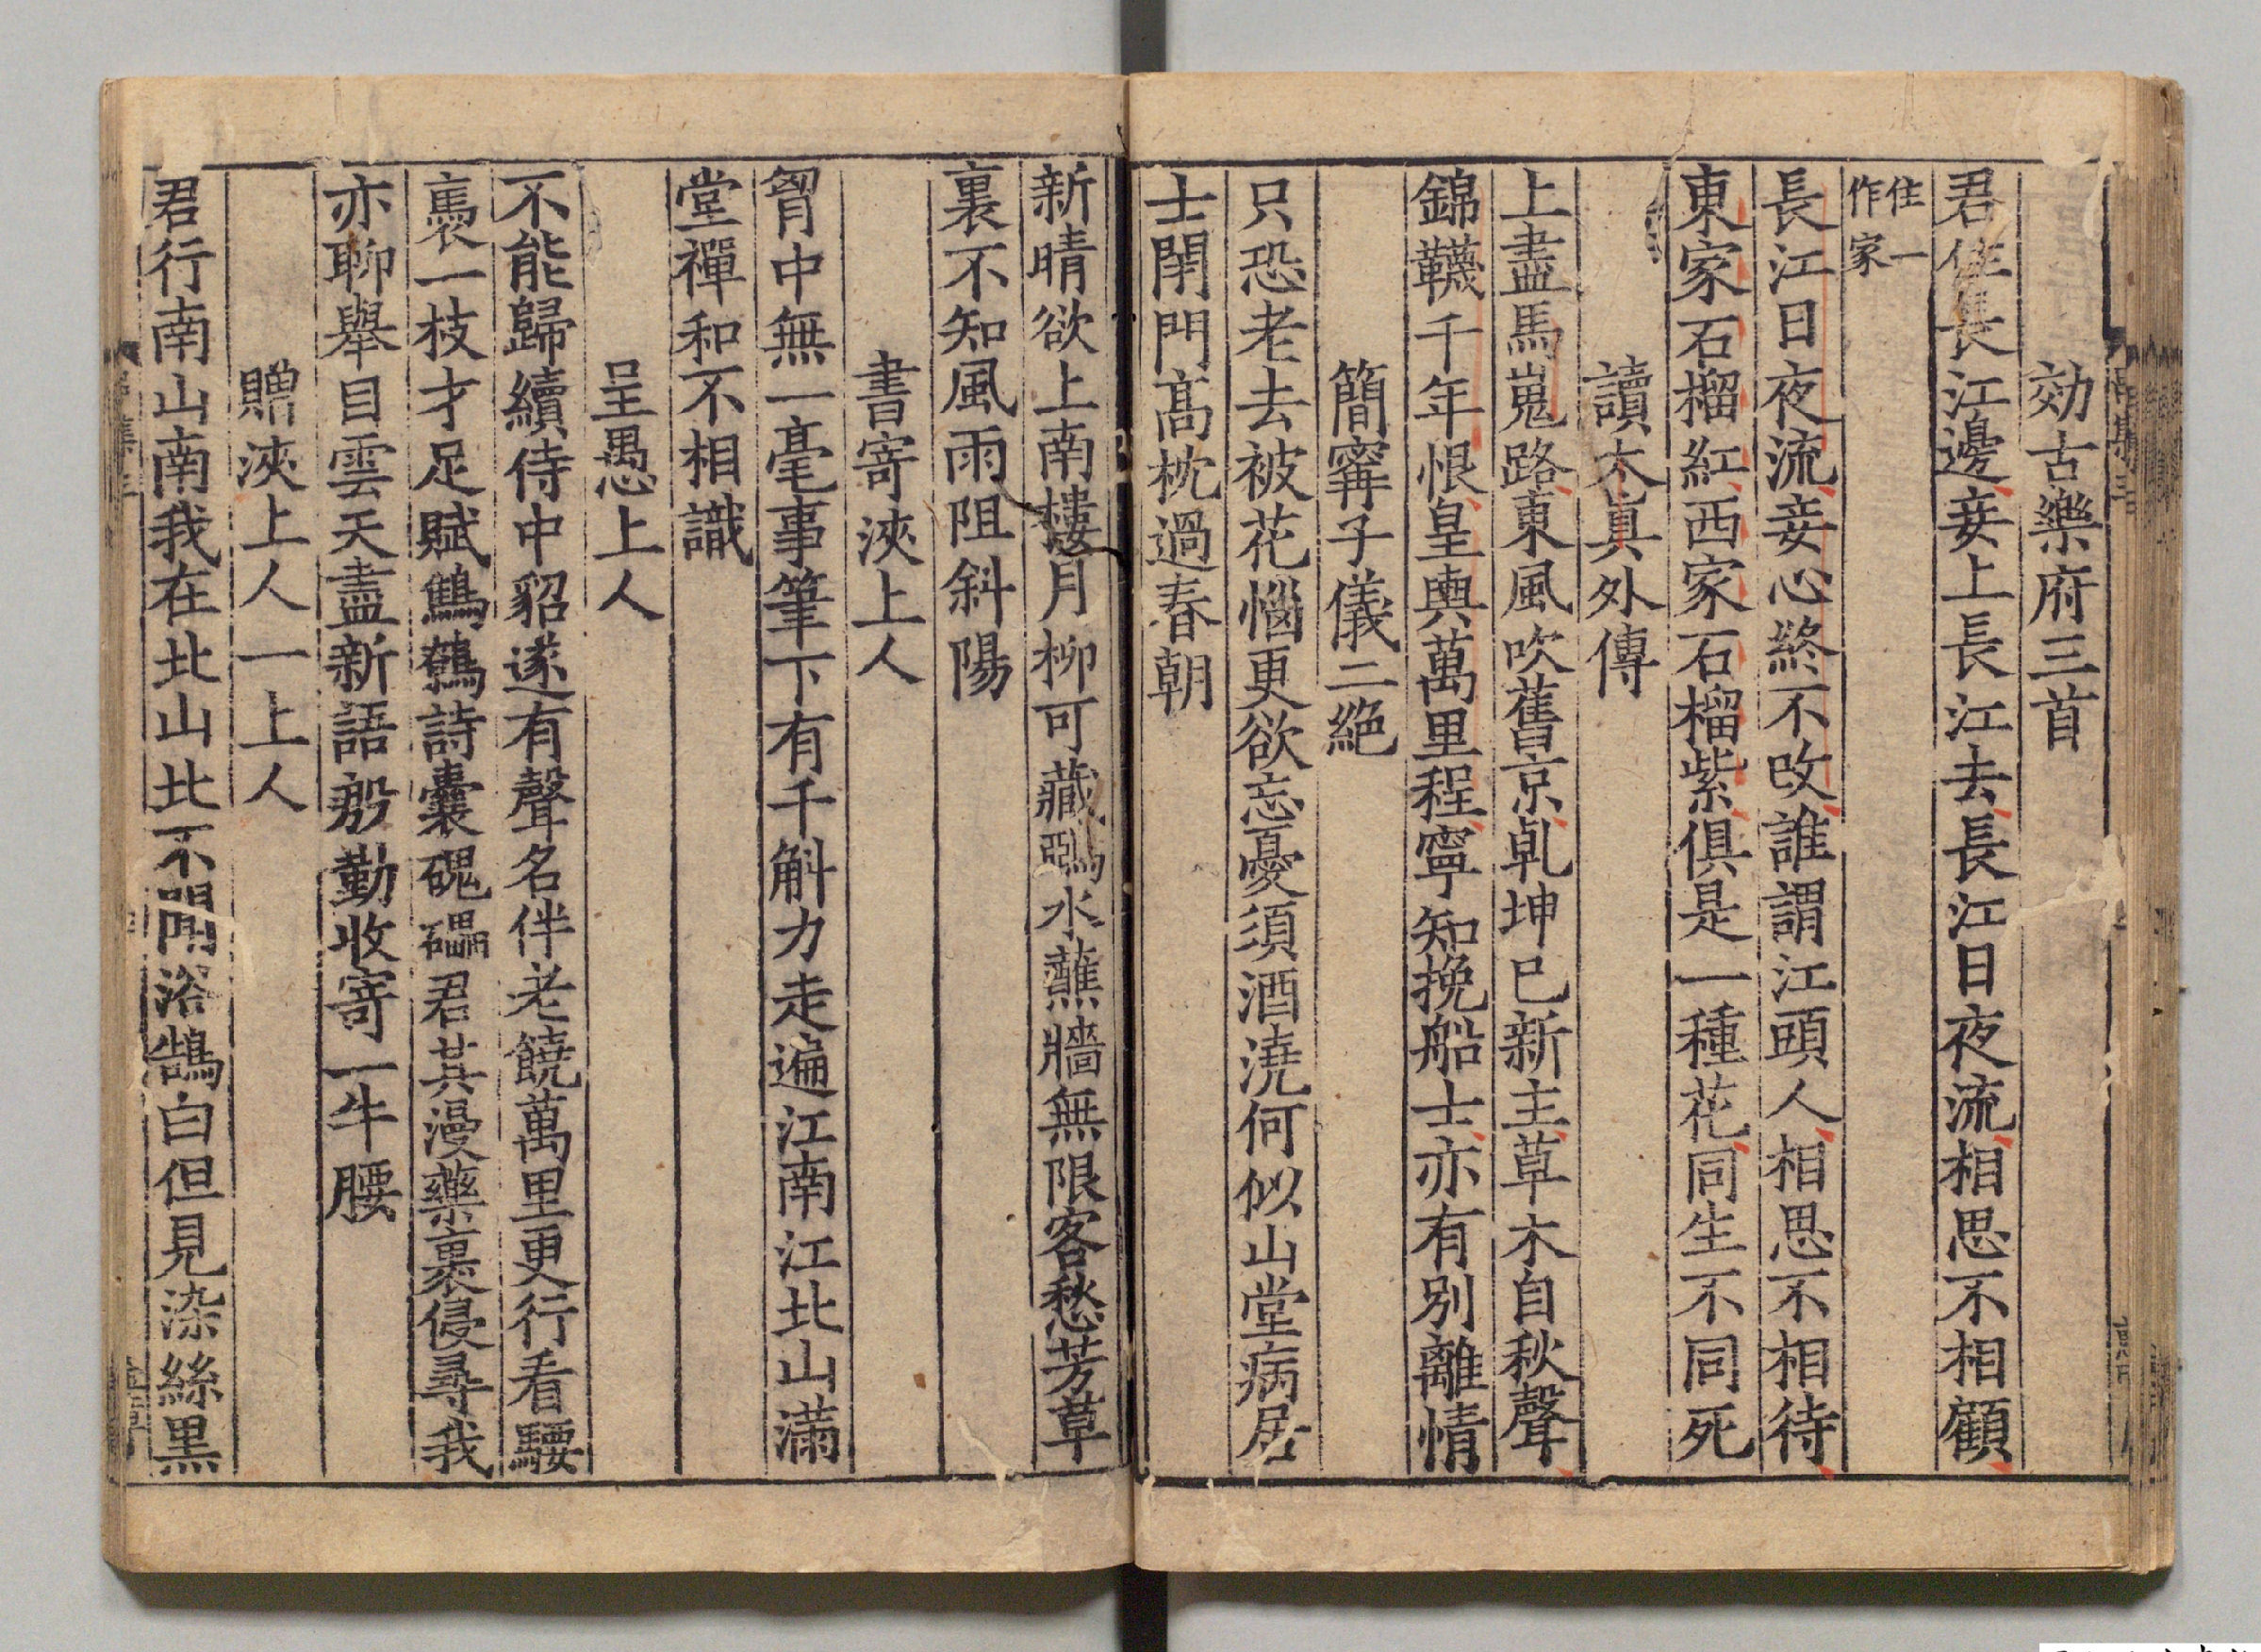 効古樂府三首
君住長江邊妾上長江去長江日夜流相思不相顧
住一
作家
長江日夜流妾心終不改誰謂江頭人相思不相待
東家石榴紅西家石榴紫俱是一種花同生不同死
讀太真外傳
上盡馬嵬路東風吹舊京乹坤已新主草木自秋聲
錦韈千年恨皇輿萬里程寧知挽船士亦有別離情
簡甯子儀二絕
只恐老去被花惱更欲忘憂須酒澆何似山堂病居
士閉門高枕過春朝
新晴欲上南樓月柳可藏鵶水蘸牆無限客愁芳草
裏不知風雨阻斜陽
書寄浹上人
胷中無一毫事筆下有千斛力走遍江南江北山滿
堂禪和不相識
呈愚上人
不能歸續侍中貂遂有聲名伴老饒萬里更行看騕
褭一枝才足賦鷦鷯詩囊磈礧君其漫藥裹侵尋我
亦聊舉目雲天盡新語慇勤收寄一牛腰
贈浹上人一上人
君行南山南我在北山北不聞浴鵠白但見染絲黒